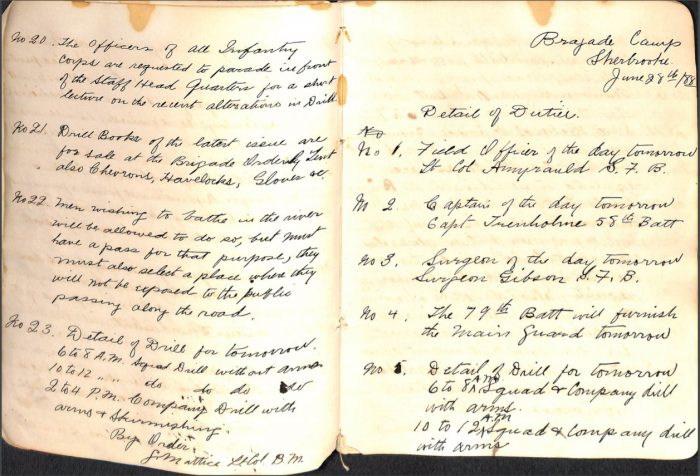 No 20. The Officers of all Infantry
Corps are requested to parade in front
of the Staff Head Quarters for a short
lecture on the recent alterations in Drill
No 21. Drill Books of the latest issue are
for sale at the Brigade Orderly Tent
also Chevrons, Havelocks, Gloves &c.
No 22. Men wishing to bathe in the river
will be allowed to do so, but must
have a pass for that purpose, they
must also select a place where they
will not be exposed to the public
passing along the road.
No 23. Detail of Drill for tomorrow.
6 to 8 A.M. Squad Drill without arms
10 to 12 " " do do do do
2 to 4 P.M. Company Drill with
arms & Skirmishing.
By Order
Mattice Lt Col. B.M.
Brigade Camp
Sherbrooke
June 28th/88
Detail of Duties.
No
No 1. Field Officer of the day tomorrow
Lt Col Amyrauld S.F.B.
No 2 Captain of the day tomorrow
Capt Trenholme 58th Batt
No 3. Surgeon of the day tomorrow
Surgeon Gibson S.F.B.
No 4. The 79th Batt will furnish
the Main Guard tomorrow
No 5. Detail of Drill for tomorrow
6 to 8 A.M. Squad & Company drill
with arms.
10 to 12 A.M. Squad & Company drill
with arms